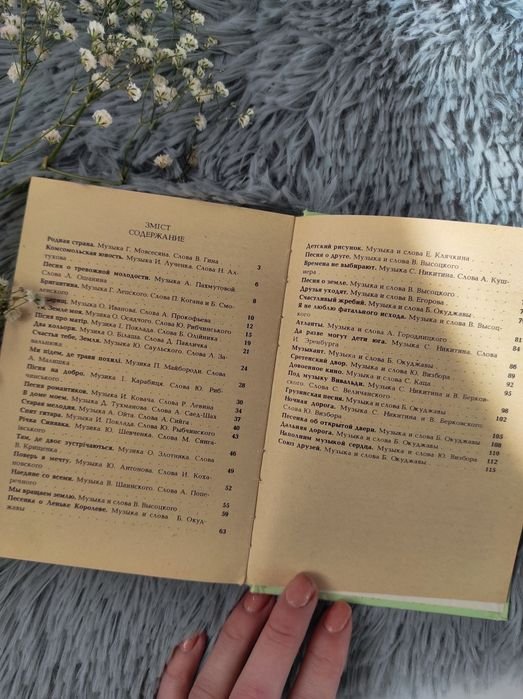 ЗМІСТ
СОДЕРЖАНИЕ
Родная страна. Музыка Г. Мовсесяна. Слова В. Гина
3
Комсомольская юность. Музыка И. Лученка. Слова Н. Алтухова
6
Песня о тревожной молодости. Музыка А. Пахмутовой
Слова Л. Ошанина
8
Бригантина. Музыка Г. Лепского. Слова П. Когана и Б. Смоленского
10
Музыка О. Иванова. Слова А. Прокофьева
12
Земле моя. Музыка О. Орлова. Слова Ю. Рибчинського
15
Пісня про матір. Музика І. Поклада. Слова Б. Олійника
17
Два кольори. Музика О. Білаша. Слова Д. Павличка
19
Счастья тебе, Земля. Музыка Ю. Саульского. Слова Л. Завальнюка
21
Ми підем, де трави похилі. Музика П. Майбороди. Слова
А. Малишка
24
Пісня на добро. Музика І. Карабиця. Слова Ю. Рибчинського
28
Песня романтиков. Музыка И. Ковача. Слова Р. Левина
30
В доме моем. Музыка Д. Тухманова. Слова А. Саед-Шах
34
Старая мелодия. Музыка А. Ойта. Слова А. Сийга
37
Спит гитара. Музыка И. Поклада. Слова Ю. Рыбчинского
40
Річка Синявка. Музика Ю. Шевченка. Слова М. Сингаївського
43
Там, де двоє зустрічаються. Музика О. Злотника. Слова
В. Крищенка
46
Поверь в мечту. Музыка Ю. Антонова. Слова И. Кохановского
49
Наедине со всеми. Музыка В. Шаинского. Слова А. Поперечного
52
Мы вращаем землю. Музыка и слова В. Высоцкого
55
Песенка о Леньке Королеве. Музыка и слова Б. Окуджавы
59
63
Детский рисунок. Музыка и слова Е. Клячкина
Песня о друге. Музыка и слова В. Высоцкого
Времена не выбирают. Музыка С. Никитина. Слова А. Кушнера
Песня о земле. Музыка и слова В. Высоцкого
Друзья уходят. Музыка и слова В. Егорова
Счастливый жребий. Музыка и слова Б. Окуджавы
Я не люблю фатального исхода. Музыка и слова В. Высоцкого
Атланты. Музыка и слова А. Городницкого
Да разве могут дети юга. Музыка С. Никитина. Слова
И. Эренбурга
Музыкант. Музыка и слова Б. Окуджавы
86
Сретенский двор. Музыка и слова Ю. Визбора
89
Довоенное кино. Музыка и слова С. Каца
92
Под музыку Вивальди. Музыка С. Никитина и В. Берковского. Слова С. Величанского
95
Грузинская песня. Музыка и слова Б. Окуджавы
Ночная дорога. Музыка С. Никитина и В. Берковского.
Слова Ю. Визбора
105
Песенка об открытой двери. Музыка и слова Б. Окуджавы
108
Дальняя дорога. Музыка и слова Б. Окуджавы
110
Наполним музыкой сердца. Музыка и слова Ю. Визбора
112
Союз друзей. Музыка и слова Б. Окуджавы
115